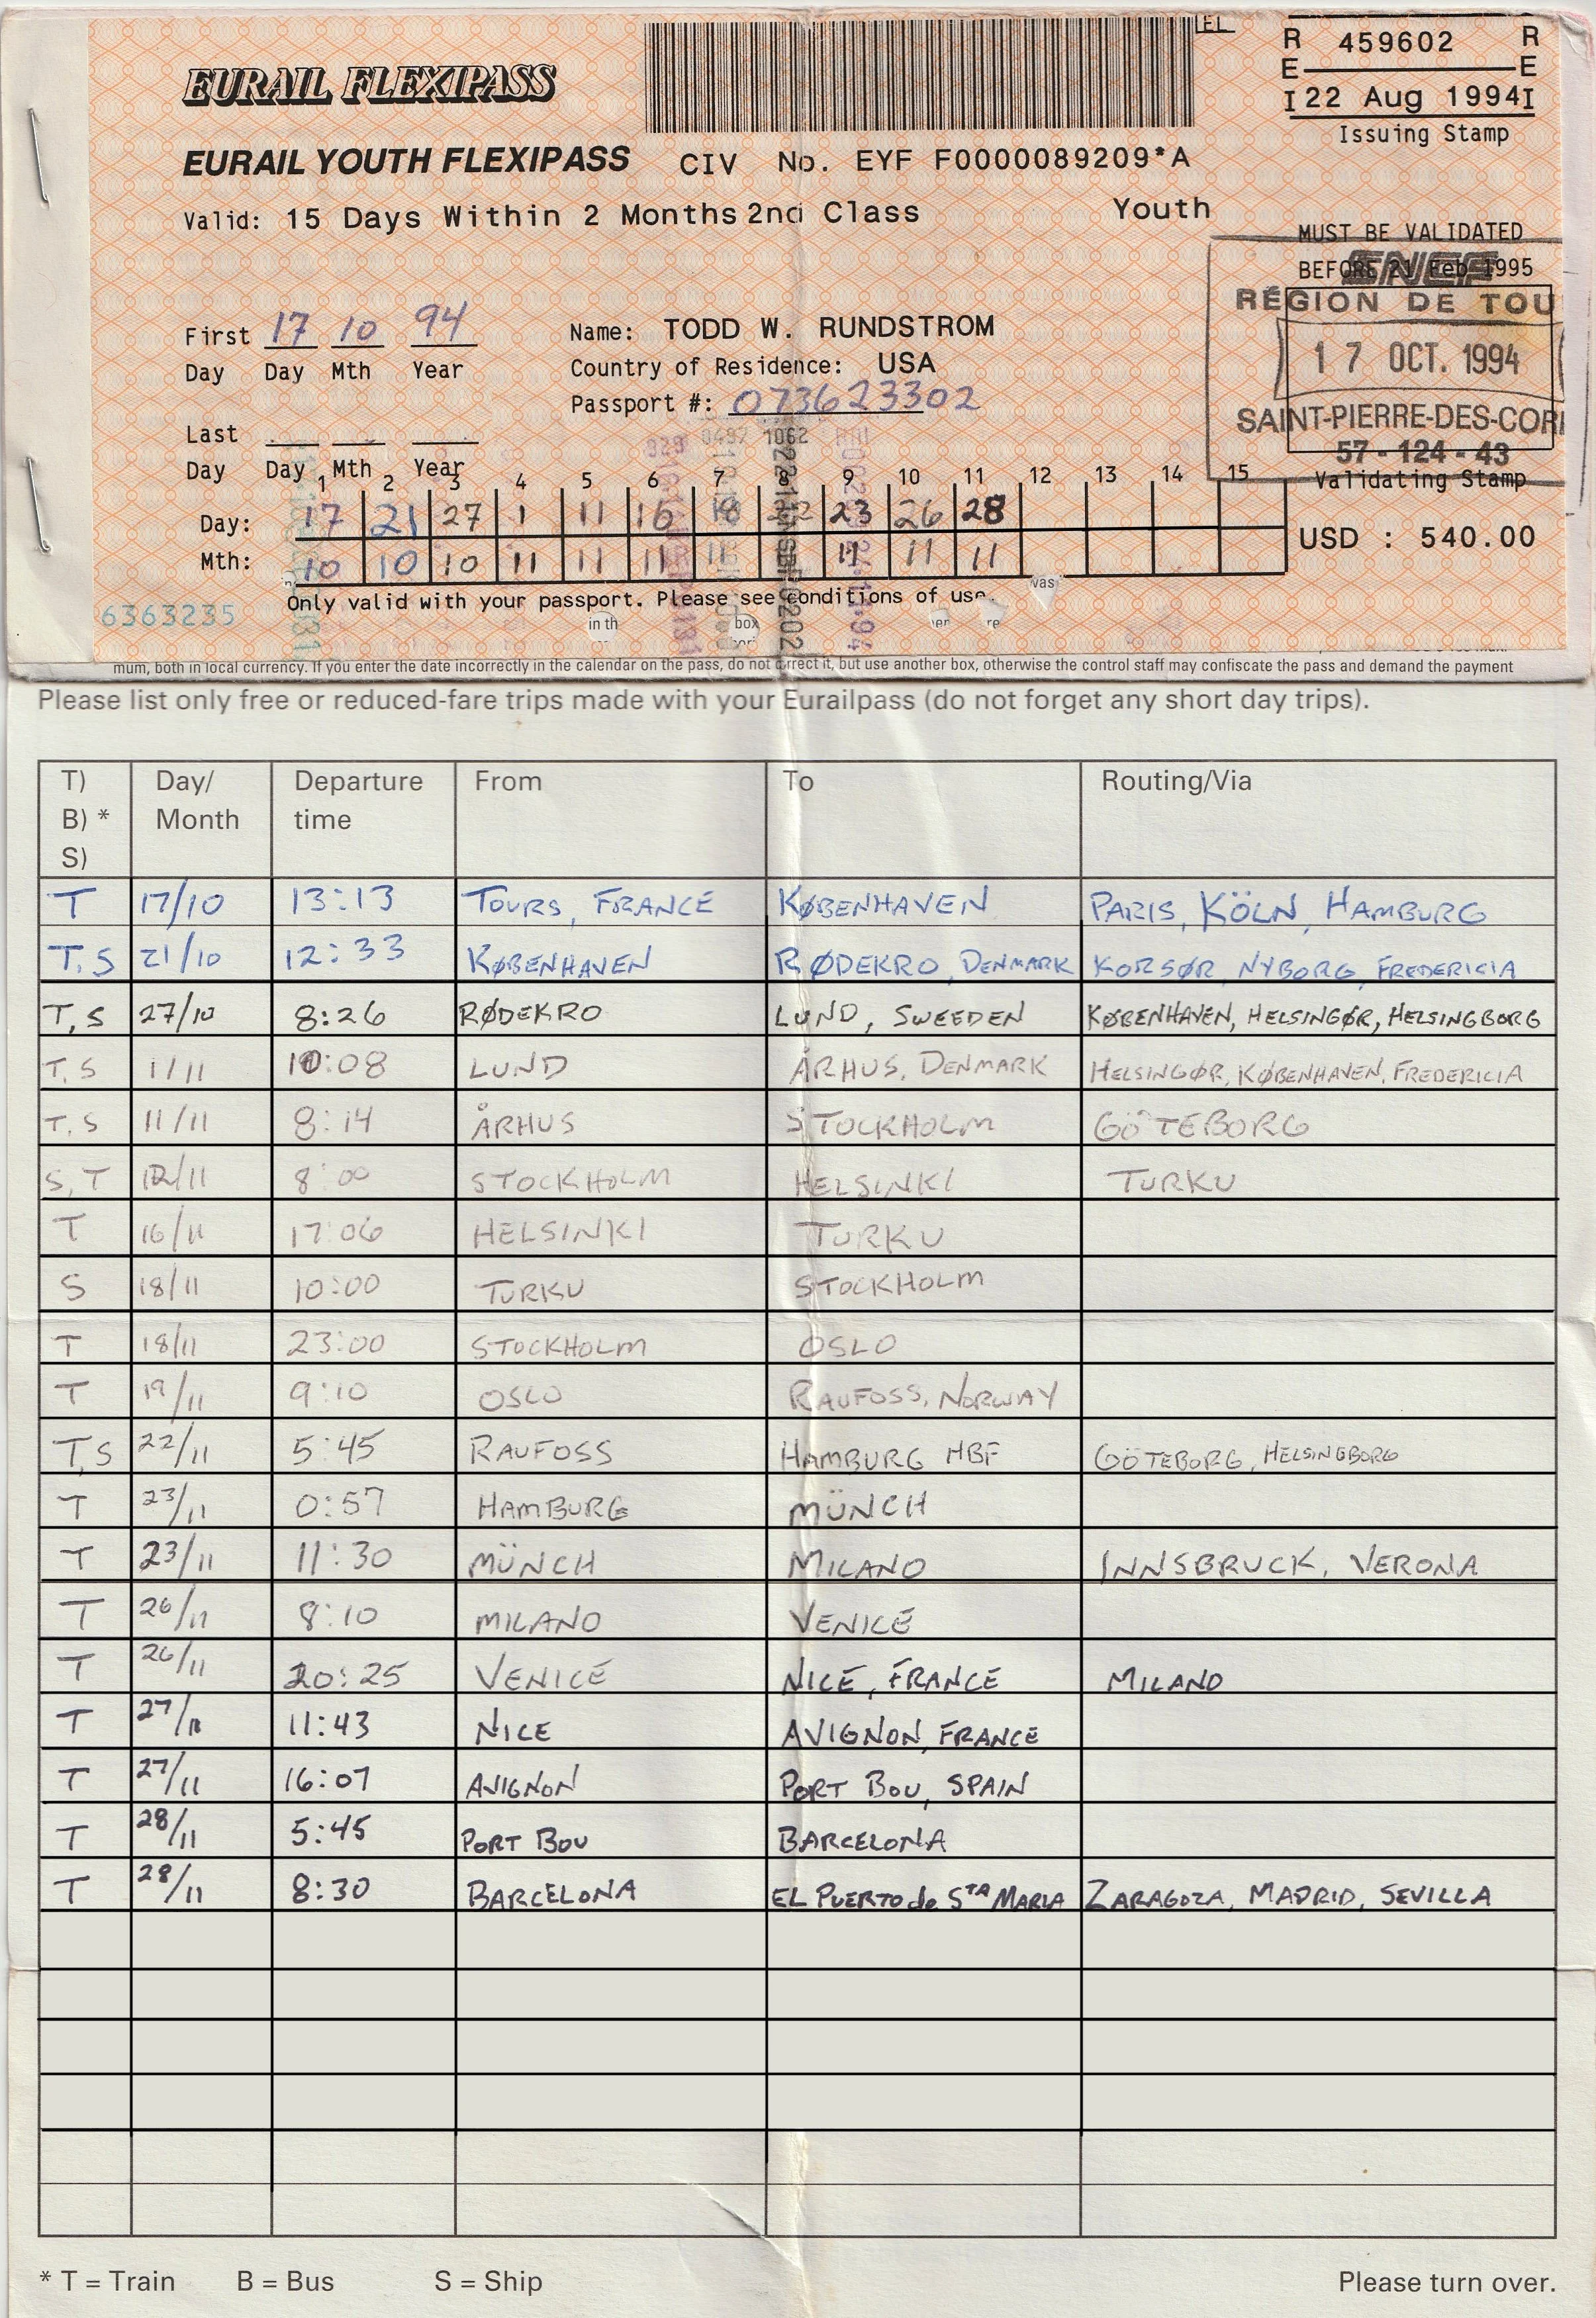 EL
R 459602 R
E E
I 22 Aug 1994 I
Issuing Stamp
EURAIL FLEXIPASS
EURAIL YOUTH FLEXIPASS CIV No. EYF F0000089209*A
Valid: 15 Days Within 2 Months 2nd Class Youth
MUST BE VALIDATED
BEFORE 21 Feb 1995
SNCF
RÉGION DE TOU
17 OCT. 1994
SAINT-PIERRE-DES-COR
57-124-43
Validating Stamp
First 17 10 94
Day Day Mth Year
Name: TODD W. RUNDSTROM
Country of Residence: USA
Passport #: 073623302
Last
Day Day Mth Year
1 2 3 4 5 6 7 8 9 10 11 12 13 14 15
Day: 17 21 27 1 11 16 18 22 23 26 28
Mth: 10 10 10 11 11 11 11 11 11 11
USD : 540.00
Only valid with your passport. Please see conditions of use.
6363235
in th box was
mum, both in local currency. If you enter the date incorrectly in the calendar on the pass, do not correct it, but use another box, otherwise the control staff may confiscate the pass and demand the payment
Please list only free or reduced-fare trips made with your Eurailpass (do not forget any short day trips).
T) Day/ Departure From To Routing/Via
B) * Month time
S)
T 17/10 13:13 TOURS, FRANCE KØBENHAVEN PARIS, KÖLN, HAMBURG
T,S 21/10 12:33 KØBENHAVEN RØDEKRO, DENMARK KORSØR, NYBORG, FREDERICIA
T,S 27/10 8:26 RØDEKRO LUND, SWEEDEN KØBENHAVEN, HELSINGØR, HELSINGBORG
T,S 1/11 10:08 LUND ÅRHUS, DENMARK HELSINGØR, KØBENHAVEN, FREDERICIA
T,S 11/11 8:14 ÅRHUS STOCKHOLM GÖTEBORG
S,T 12/11 8:00 STOCKHOLM HELSINKI TURKU
T 16/11 17:06 HELSINKI TURKU
S 18/11 10:00 TURKU STOCKHOLM
T 18/11 23:00 STOCKHOLM OSLO
T 19/11 9:10 OSLO RAUFOSS, NORWAY
T,S 22/11 5:45 RAUFOSS HAMBURG HBF GÖTEBORG, HELSINGBORG
T 23/11 0:57 HAMBURG MÜNCH
T 23/11 11:30 MÜNCH MILANO INNSBRUCK, VERONA
T 26/11 8:10 MILANO VENICE
T 26/11 20:25 VENICE NICE, FRANCE MILANO
T 27/11 11:43 NICE AVIGNON, FRANCE
T 27/11 16:07 AVIGNON PORT BOU, SPAIN
T 28/11 5:45 PORT BOU BARCELONA
T 28/11 8:30 BARCELONA EL PUERTO de STA MARIA ZARAGOZA, MADRID, SEVILLA
* T = Train B = Bus S = Ship Please turn over.